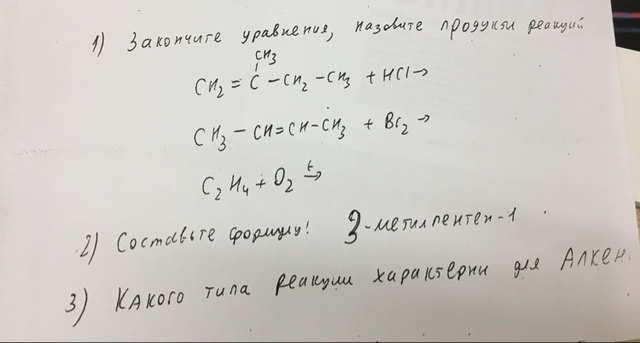 1) Закончите уравнения, назовите продукты реакций
CH3
CH2 = C - CH2 - CH3 + HCl →
CH3 - CH = CH - CH3 + Br2 →
C2H4 + O2 t→
2) Составьте формулу! 3-метилпентен-1
3) Какого типа реакции характерны для Алкен.